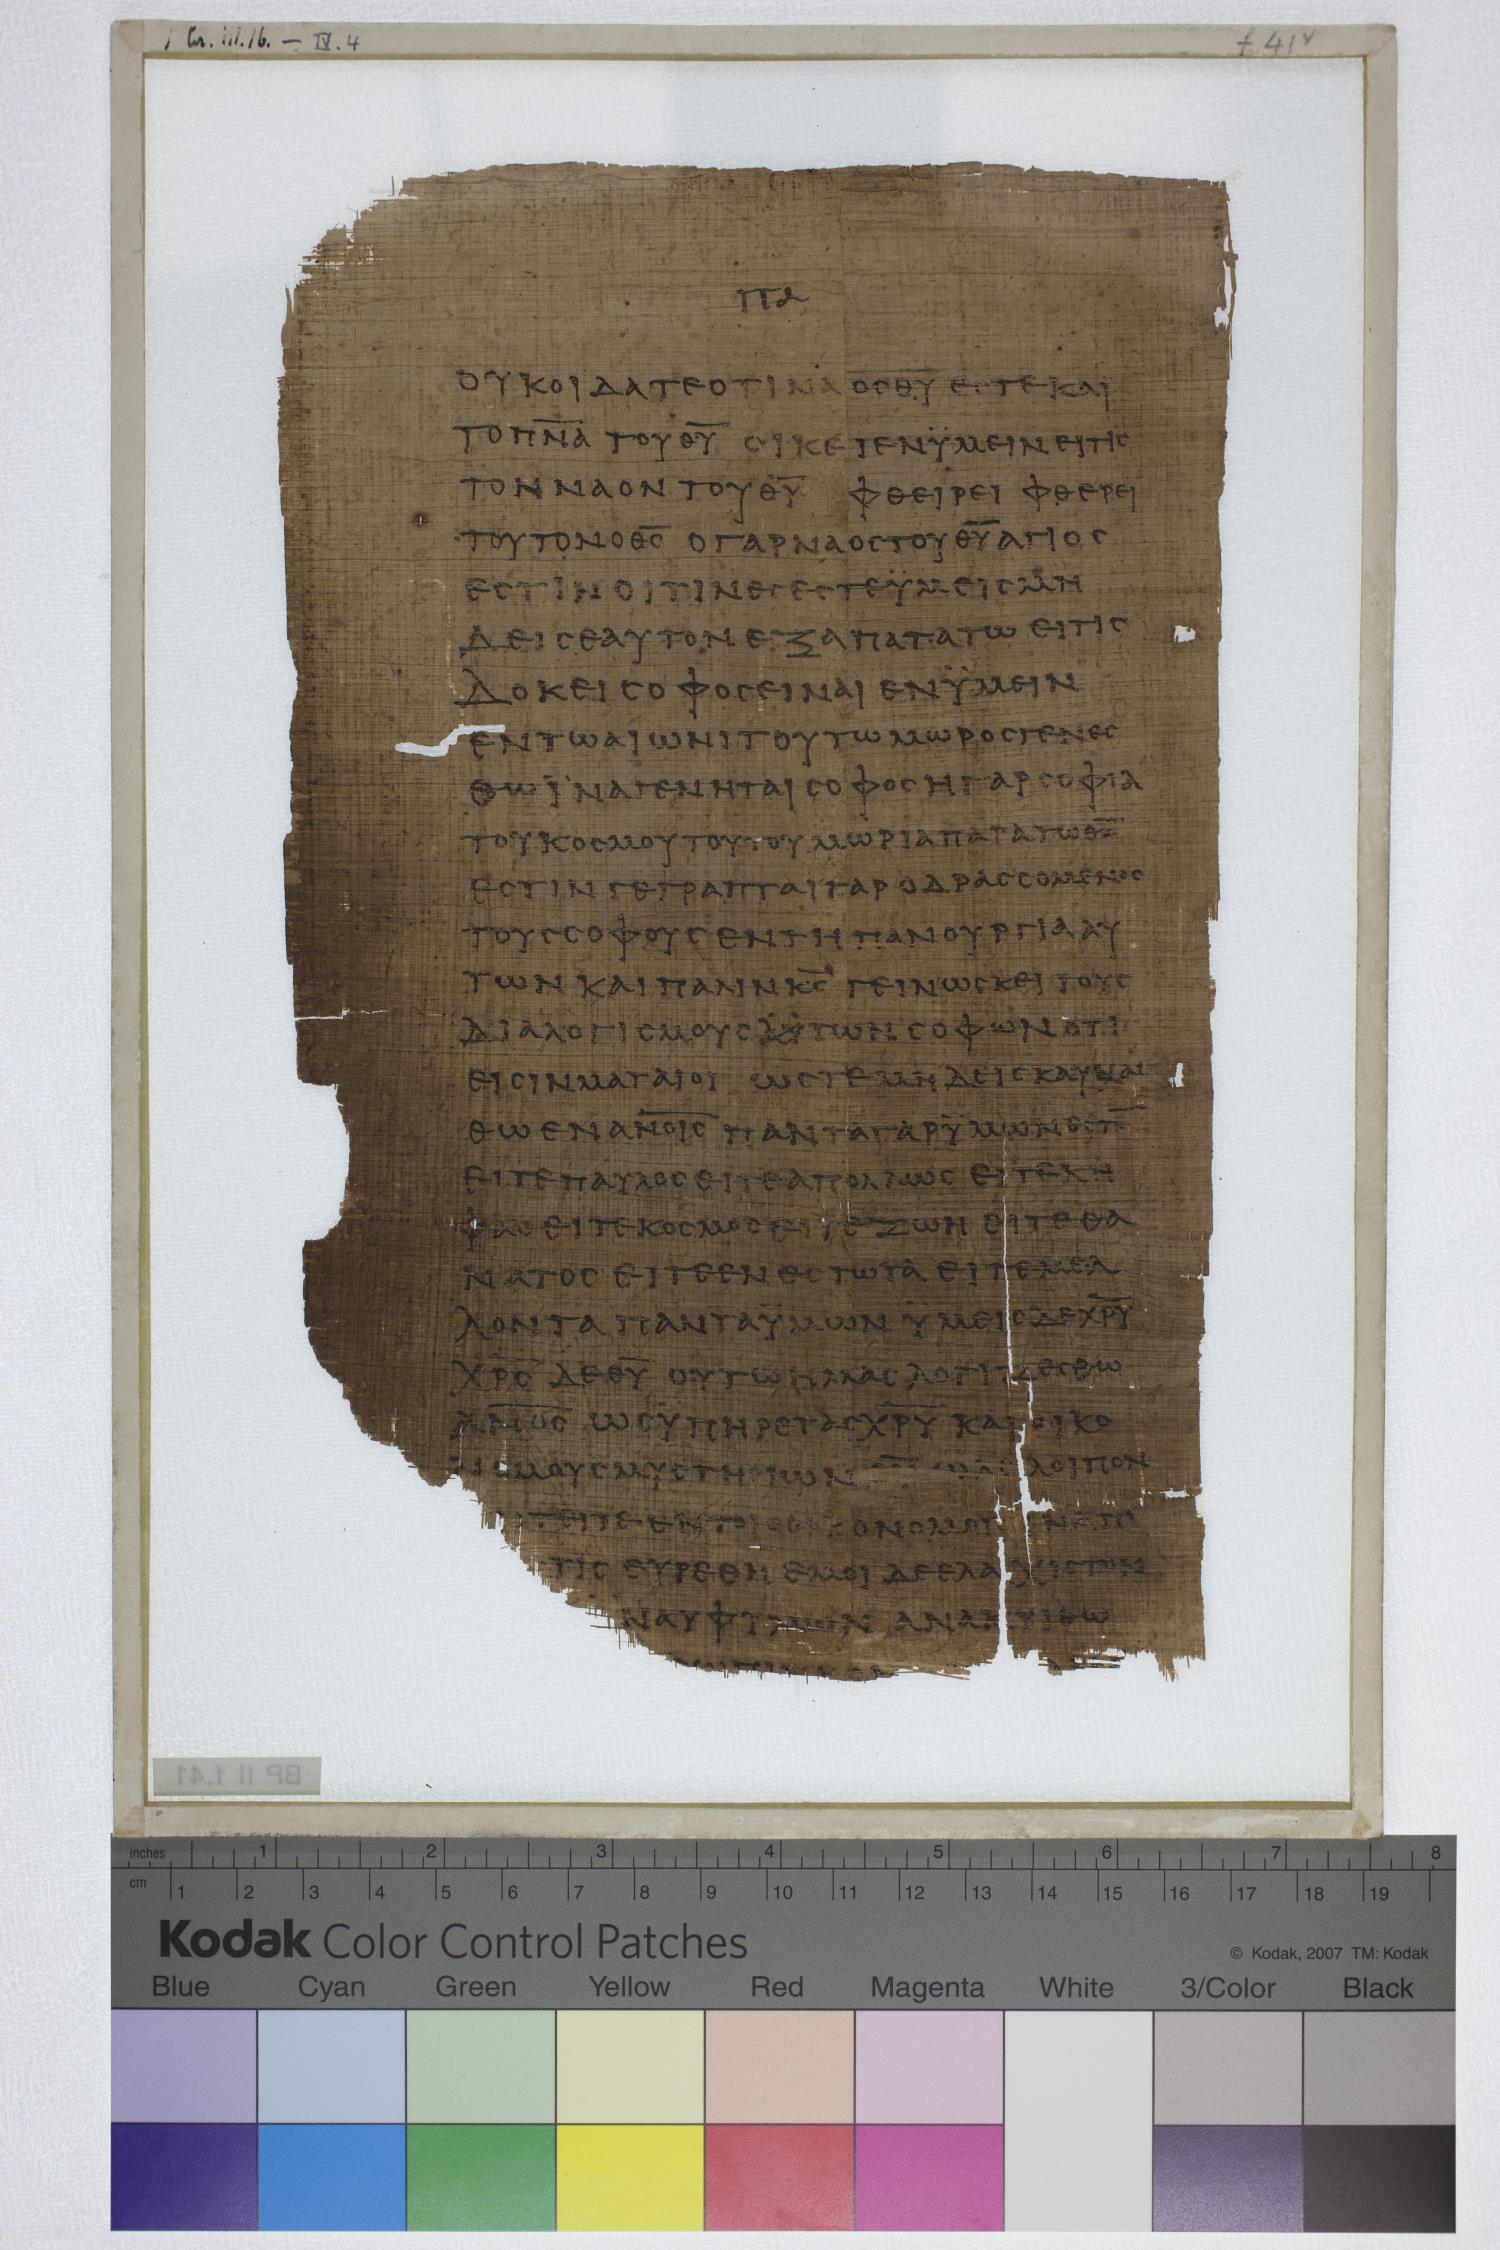 1 Cor. III. 16. — IV. 4
f. 41v
ΠΑ
ΟΥΚΟΙΔΑΤΕΟΤΙΝΑΟCΘ̅Υ̅ΕCΤΕΚΑΙ
ΤΟΠ̅Ν̅Α̅ ΤΟΥΘ̅Υ̅ ΟΙΚΕΙΕΝΫΜΕΙΝΕΙΤΙC
ΤΟΝΝΑΟΝΤΟΥΘ̅Υ̅ ΦΘΕΙΡΕΙ ΦΘΕΡΕΙ
ΤΟΥΤΟΝΟΘ̅C̅ ΟΓΑΡΝΑΟCΤΟΥΘ̅Υ̅ΑΓΙΟC
ΕCΤΙΝΟΙΤΙΝΕCΕCΤΕΫΜΕΙCΜΗ
ΔΕΙCΕΑΥΤΟΝΕΞΑΠΑΤΑΤΩ ΕΙΤΙC
ΔΟΚΕΙCΟΦΟCΕΙΝΑΙ ΕΝΫΜΕΙΝ
ΕΝΤΩΑΙΩΝΙΤΟΥΤΩΜΩΡΟCΓΕΝΕC
ΘΩΪΝΑΓΕΝΗΤΑΙCΟΦΟCΗΓΑΡCΟΦΙΑ
ΤΟΥΚΟCΜΟΥΤΟΥΤΟΥΜΩΡΙΑΠΑΡΑΤΩΘ̅Ω̅
ΕCΤΙΝΓΕΓΡΑΠΤΑΙΓΑΡ ΟΔΡΑCCΟΜΕΝΟC
ΤΟΥCCΟΦΟΥC ΕΝΤΗΠΑΝΟΥΡΓΙΑΑΥ
ΤΩΝ ΚΑΙΠΑΛΙΝΚ̅C̅ ΓΕΙΝΩCΚΕΙΤΟΥC
ΔΙΑΛΟΓΙCΜΟΥC ΤΩΝCΟΦΩΝΟΤΙ
ΕΙCΙΝΜΑΤΑΙΟΙ ΩCΤΕΜΗΔΕΙCΚΑΥΧΑC
ΘΩΕΝΑΝ̅Ο̅Ι̅C̅ ΠΑΝΤΑΓΑΡΫΜΩΝΕCΤΙ̅
ΕΙΤΕΠΑΥΛΟCΕΙΤΕΑΠΟΛΛΩC ΕΙΤΕΚΗ
ΦΑC ΕΙΤΕΚΟCΜΟC ΕΙΤΕΖΩΗ ΕΙΤΕΘΑ
ΝΑΤΟC ΕΙΤΕΕΝΕCΤΩΤΑ ΕΙΤΕΜΕΛ
ΛΟΝΤΑ ΠΑΝΤΑΫΜΩΝ ΫΜΕΙCΔΕΧ̅Ρ̅Υ̅
Χ̅Ρ̅C̅ ΔΕΘ̅Υ̅ ΟΥΤΩΗΜΑC ΛΟΓΙΖΕCΘΩ
ΑΝ̅Ο̅C̅ ΩCΫΠΗΡΕΤΑCΧ̅Ρ̅Υ̅ ΚΑΙΟΙΚΟ
ΝΟΜΟΥCΜΥCΤΗΡΙΩΝ ΛΟΙΠΟΝ
ΤΕΙΤΕ ΕΝΤΟΙCΟΙΚΟΝΟΜΟΙC ΙΝΑ
ΤΙC ΕΥΡΕΘΗ ΕΜΟΙ ΔΕΕΛΑΧΙCΤΟΝ
ΝΑΥΦΫΜΩΝ ΑΝΑΚΡΙΘΩ
BP II f.41
inches 1 2 3 4 5 6 7 8
cm 1 2 3 4 5 6 7 8 9 10 11 12 13 14 15 16 17 18 19
Kodak Color Control Patches
© Kodak, 2007 TM: Kodak
Blue Cyan Green Yellow Red Magenta White 3/Color Black